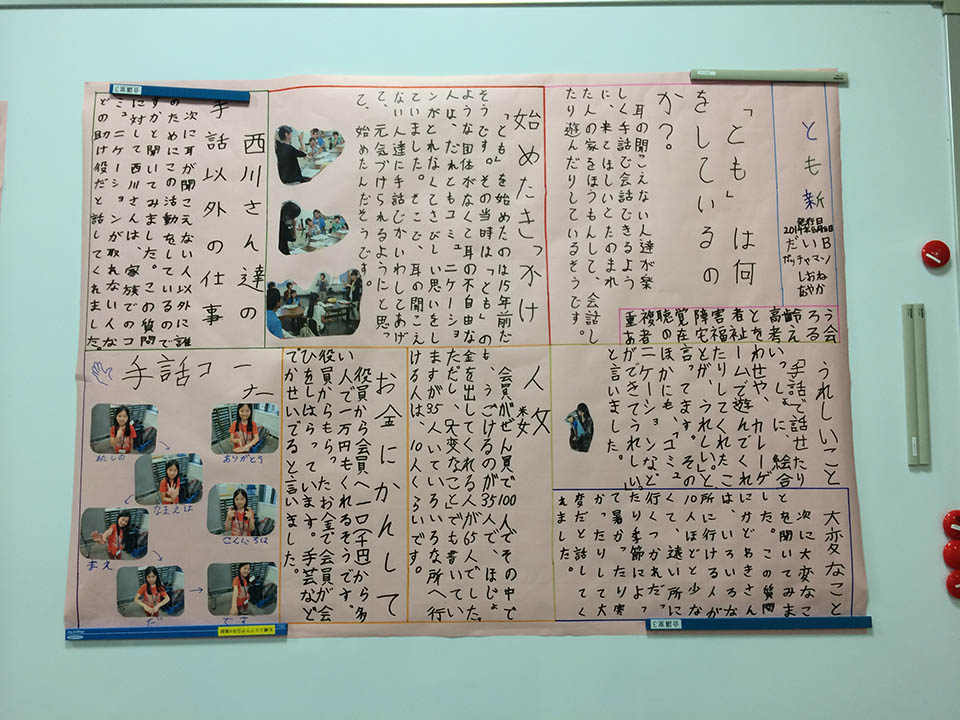 とも新
発行日
だいB
ガッチャマン
しおね
あやか
「とも」は何
をしているの
か？
耳の聞こえない人達が楽
しく手話で会話できるよう
に、来てほしいとたのまれ
た人の家をほうもんして、会話し
たり遊んだりしているそうです。
始めたきっかけ
「とも」を始めたのは15年前だ
そうです。その当時は「とも」の
ような団体がなくて耳の不自由な
人は、だれともコミュニケーショ
ンがとれなくてさびしい思いをし
ていました。そこで、耳の聞こえ
ない人達に手話でかいわしてあげ
て、元気づけられるようにと思っ
て、始めたんだそうです。
西川さん達の
手話以外の仕事
次に耳が聞こえない人以外に誰
のためにこの活動をしているので
すかと聞いてみました。この質問
に対して西川さんは、家族でのコ
ミュニケーションが取れない人な
どの助け役だと話してくれました。
うれしいこと
「手話で話せたり
いっしょに、絵合
わせや、カレーゲ
ームで遊んでくれ
たりしてくれたこ
とが、うれしい。」と
言ってます。その
ほかにも、「コミュ
ニケーションなど
ができてうれしい。」
と言いました。
大変なこと
次に大変なこ
とを聞いてみま
した。この質問
にかどめきさん
は、いろいろな
所に行ける人が
10人ほどと少な
くて、遠い所に
行くつかれだっ
たり季節によっ
て暑かったり寒
かったりして大
変だと話してく
れました。
人数
会員がぜん員で100人でその中で
も、うごけるのが35人で、ほじょ
金を出してくれる人が65人でした。
ただし、「大変なこと」でも書いてい
ますが35人でいろいろな所へ行
ける人は、10人くらいです。
お金にかんして
役員から会員へ一〇千円から多
い人で一万円もくれるそうです。
役員からもらったお金で会員が会
ひをしはらっています。手芸など
でかせいでると言いました。
手話コーナー
ありがとう
わたしの
なまえは
こんにちは
まえ
だい
です
会議室3
会議室3